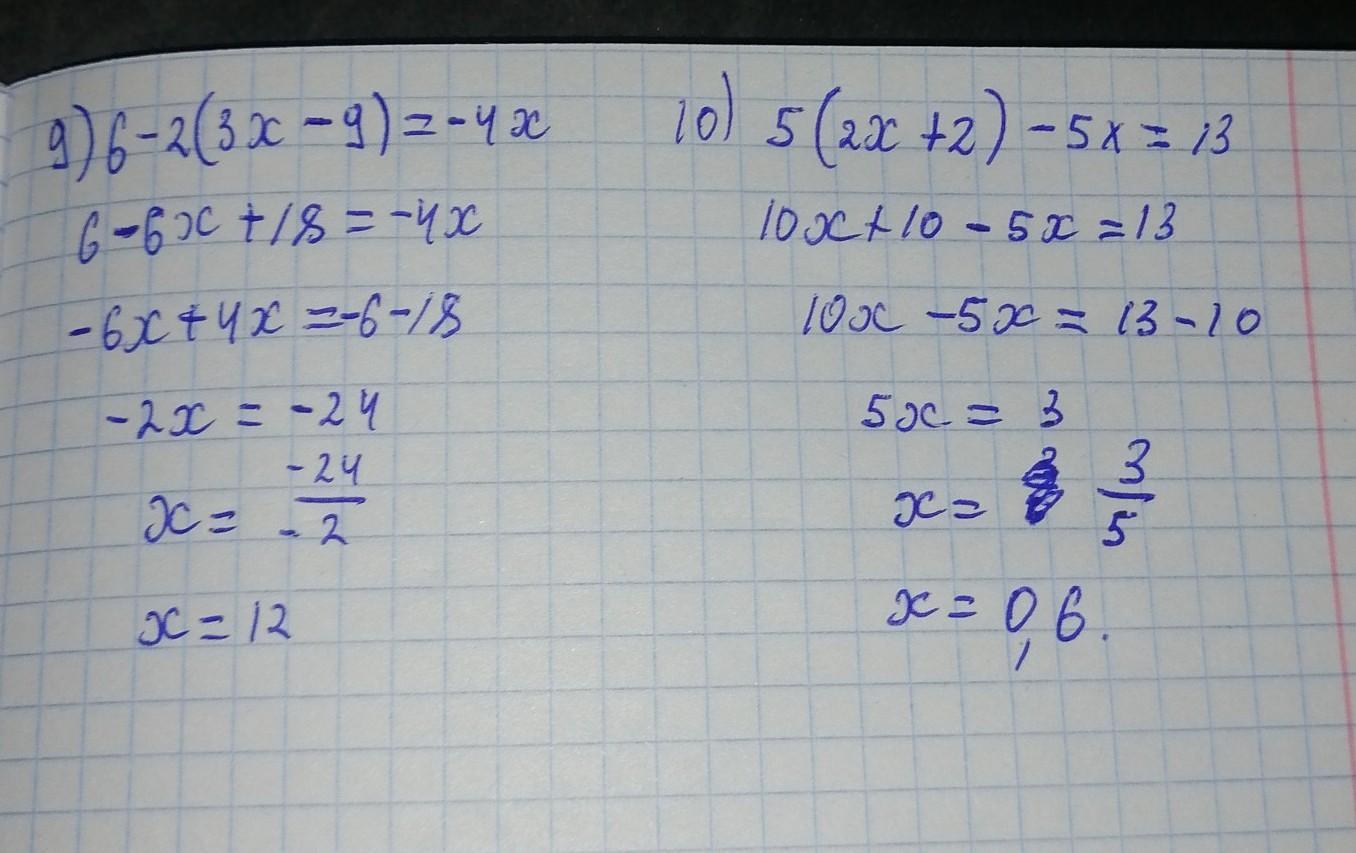 9) 6-2(3x-9)=-4x
6-6x+18=-4x
-6x+4x=-6-18
-2x=-24
x=\frac{-24}{-2}
x=12
10) 5(2x+2)-5x=13
10x+10-5x=13
10x-5x=13-10
5x=3
x=\frac{3}{5}
x=0,6.